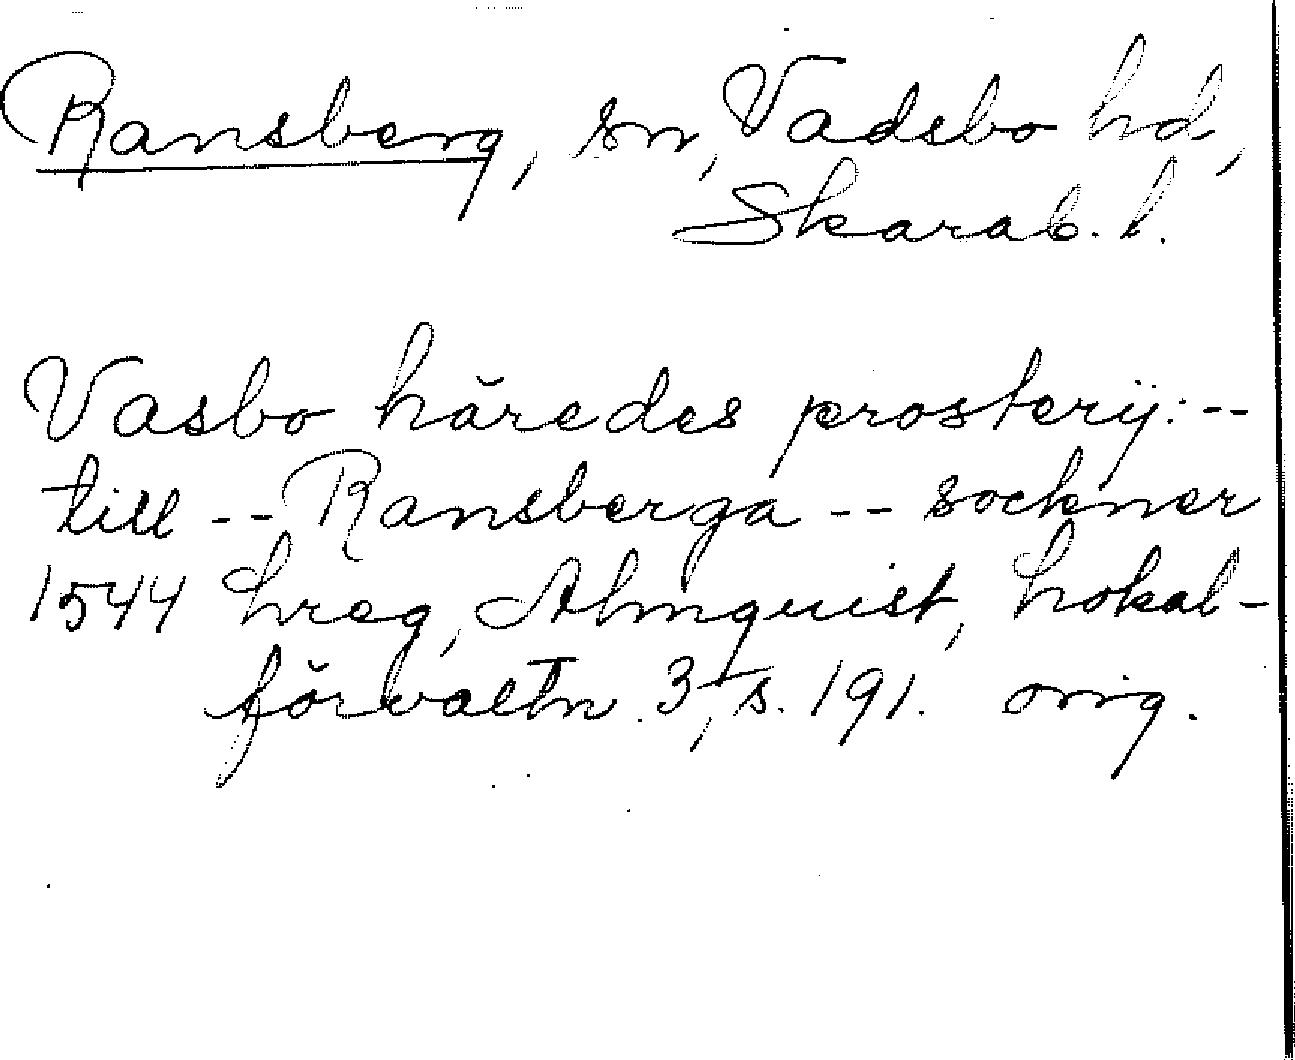 Ransberg, sn, Vadsbo hd,
Skarab. l.
Vasbo häredes prosterij: --
till -- Ransberga -- sockner
1544 Lreg, Almquist, Lokal-
förvaltn. 3, s. 191. orig.